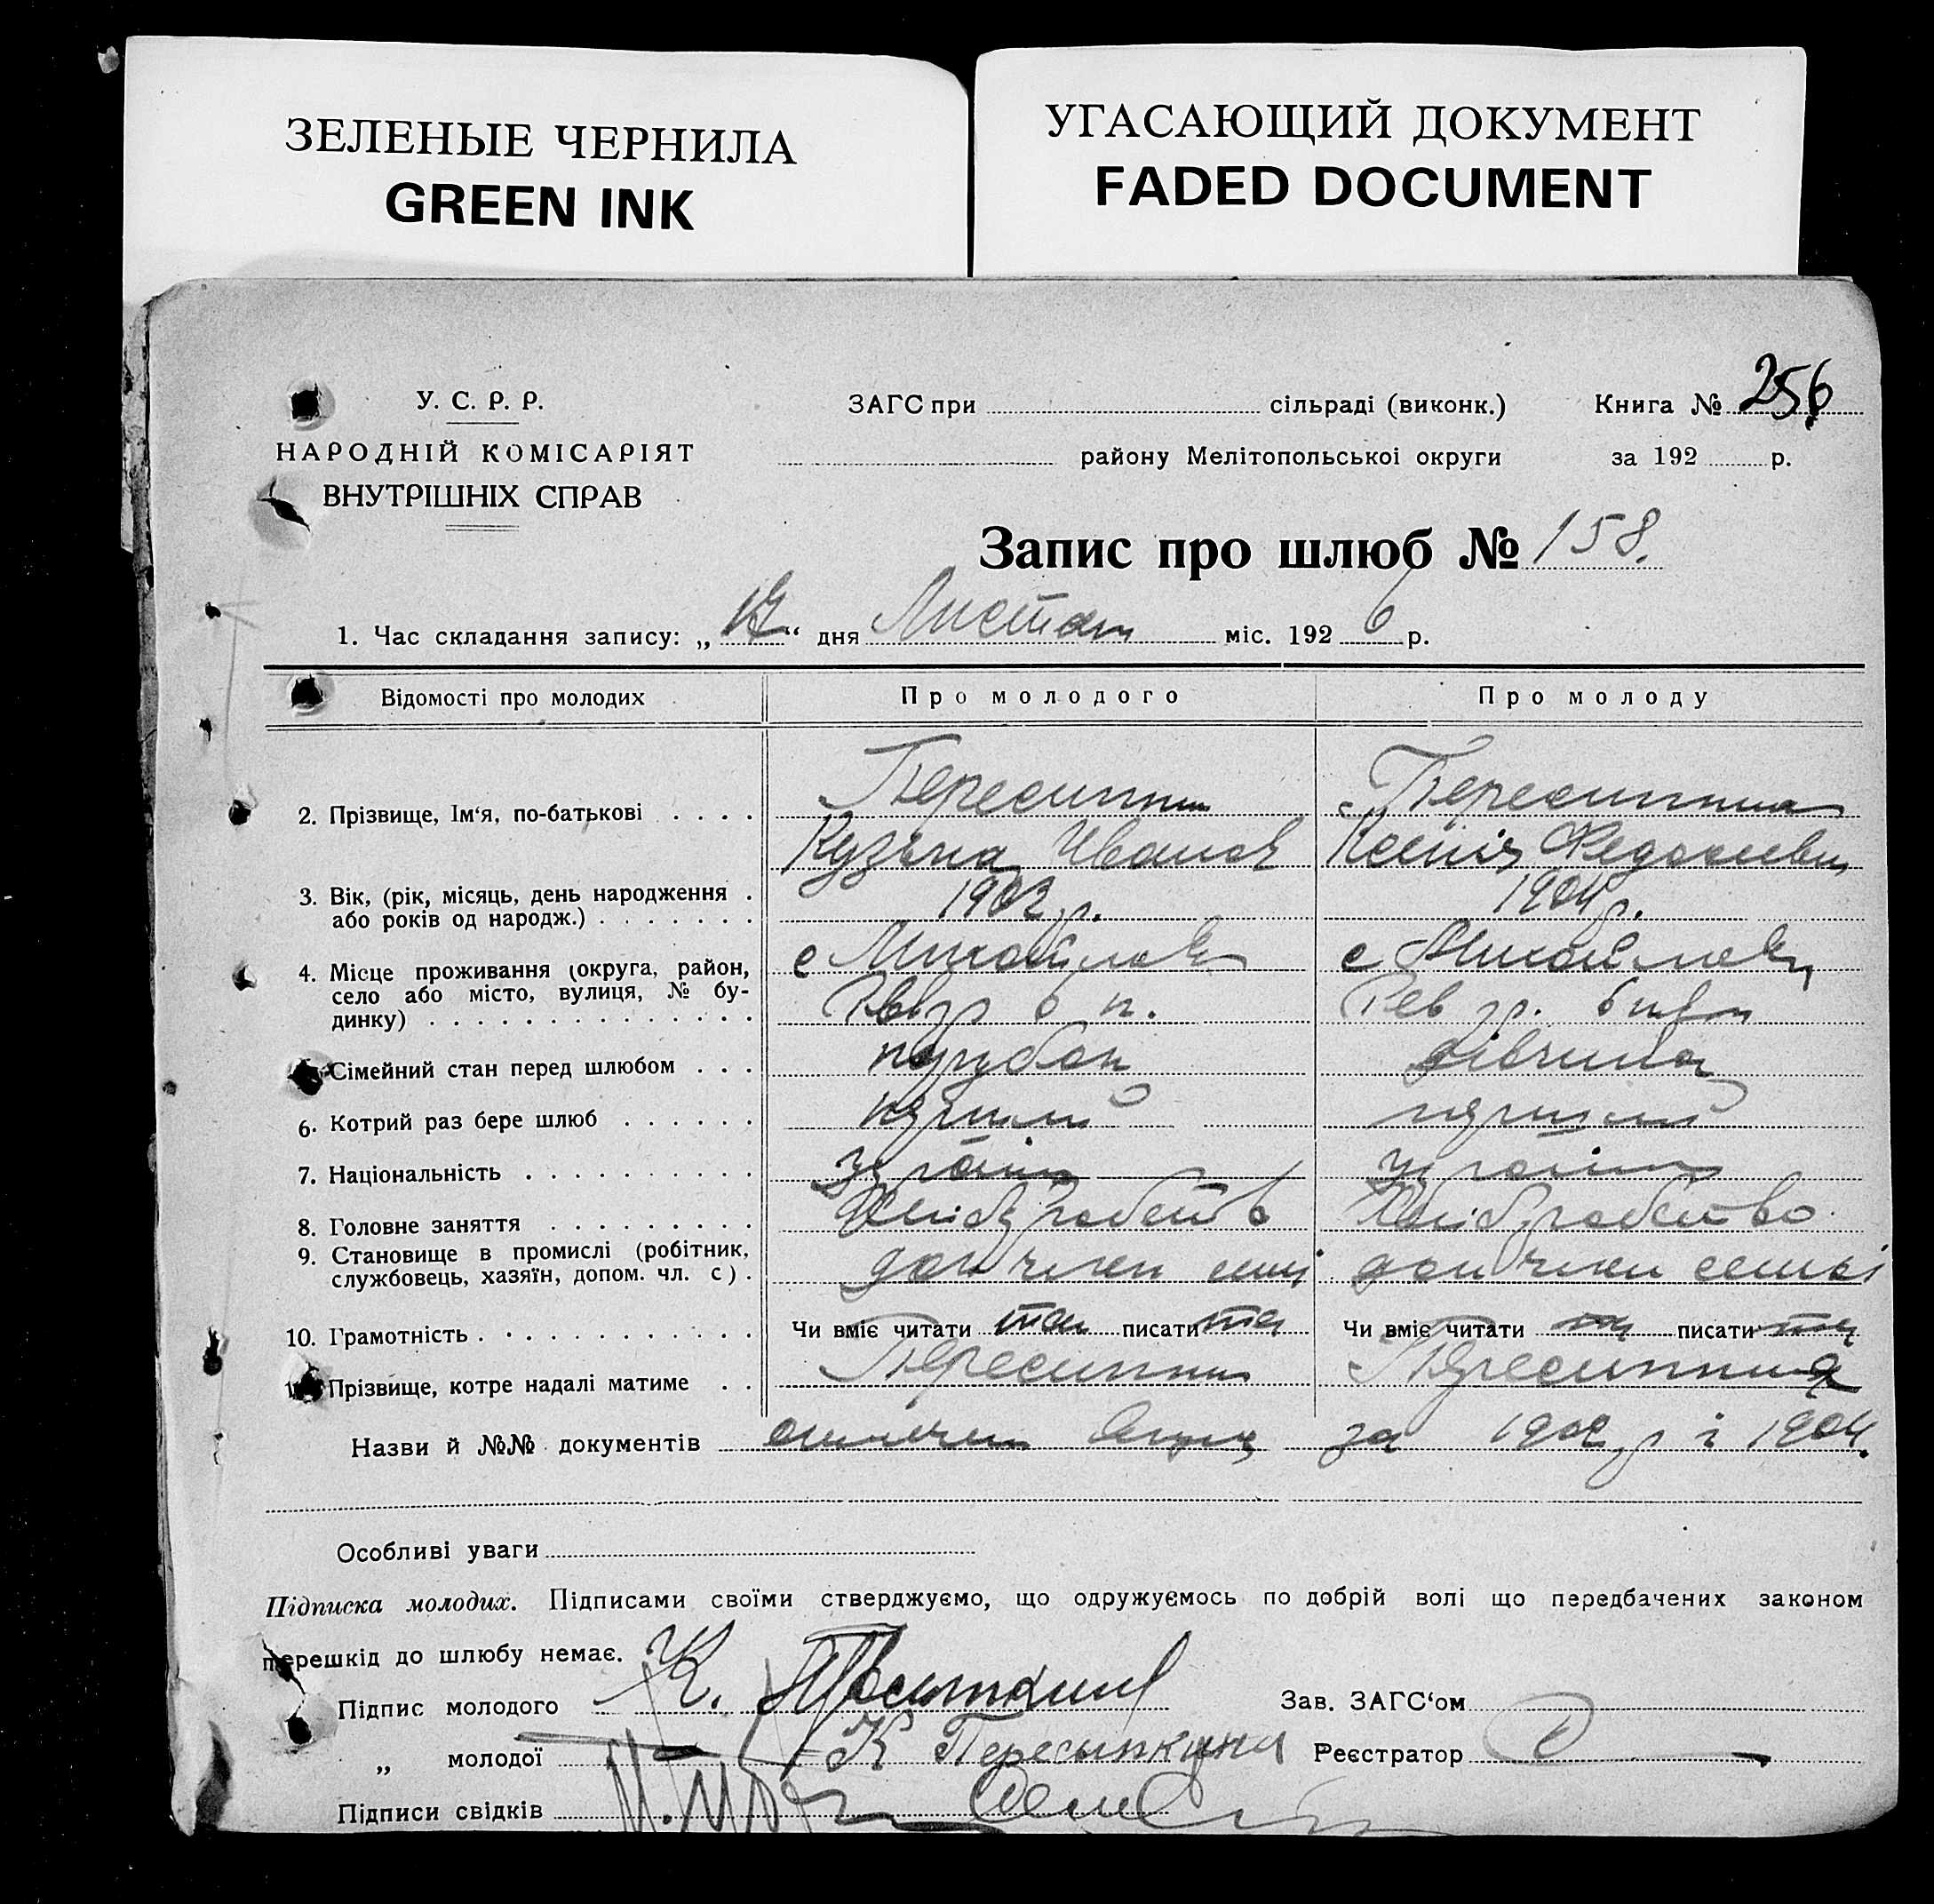 ЗЕЛЕНЫЕ ЧЕРНИЛА
GREEN INK
УГАСАЮЩИЙ ДОКУМЕНТ
FADED DOCUMENT
У. С. Р. Р.
НАРОДНІЙ КОМІСАРІЯТ
ВНУТРІШНІХ СПРАВ
ЗАГС при сільраді (виконк.) Книга № 256
району Мелітопольської округи за 192 р.
Запис про шлюб № 158.
1. Час складання запису: „ “ дня Листопад міс. 1926 р.
Відомості про молодих Про молодого Про молоду
2. Прізвище, Ім‘я, по-батькові Пересипкин Пересипкина
Кузьма Иванов Ксенія Федосиевн
3. Вік, (рік, місяць, день народження 1902 р. 1904 р.
або років од народж.)
4. Місце проживання (округа, район, с Михайлівк с Михайлівк
село або місто, вулиця, № бу- б н. Рев гр.
динку)
Сімейний стан перед шлюбом парубок дівчина
6. Котрий раз бере шлюб перший перший
7. Національність україн україн
8. Головне заняття Хліборобство Хліборобство
9. Становище в промислі (робітник,
службовець, хазяїн, допом. чл. с). доп член семї доп член семьї
10. Грамотність Чи вміє читати так писати та Чи вміє читати та писати та
Прізвище, котре надалі матиме Пересипкин Пересипкина
Назви й №№ документів за 1902 р і 1904.
Особливі уваги
Підписка молодих. Підписами своїми стверджуємо, що одружуємось по добрій волі що передбачених законом
перешкід до шлюбу немає.
Підпис молодого К. Зав. ЗАГС‘ом
„ молодої К Пересыпкина Реєстратор
Підписи свідків